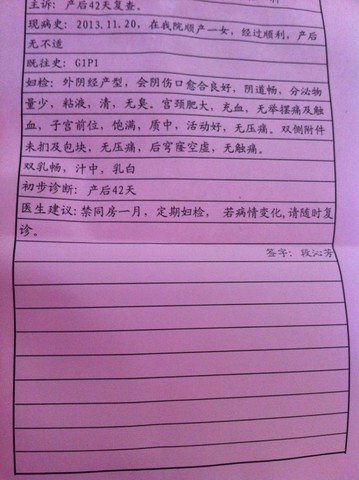 主诉: 产后42天复查。
现病史: 2013.11.20, 在我院顺产一女, 经过顺利, 产后
无不适
既往史: G1P1
妇检: 外阴经产型, 会阴伤口愈合良好, 阴道畅, 分泌物
量少, 粘液, 清, 无臭。宫颈肥大, 充血, 无举摆痛及触
血, 子宫前位, 饱满, 质中, 活动好, 无压痛。双侧附件
未扪及包块, 无压痛, 后穹窿空虚, 无触痛。
双乳畅, 汁中, 乳白
初步诊断: 产后42天
医生建议: 禁同房一月, 定期妇检, 若病情变化, 请随时复
诊。
签字: 段沁芳